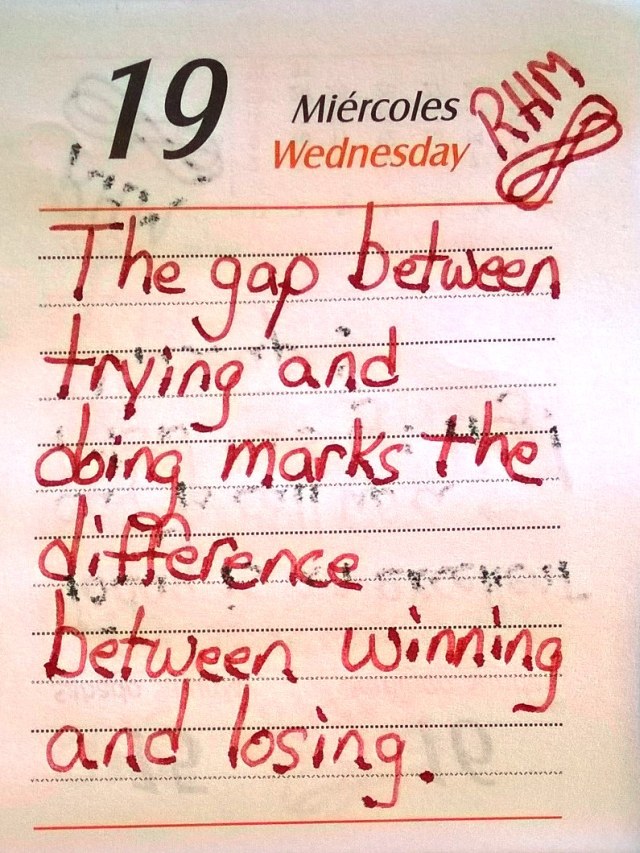 19
Miércoles
Wednesday
RHM
The gap between
trying and
doing marks the
difference
between winning
and losing.